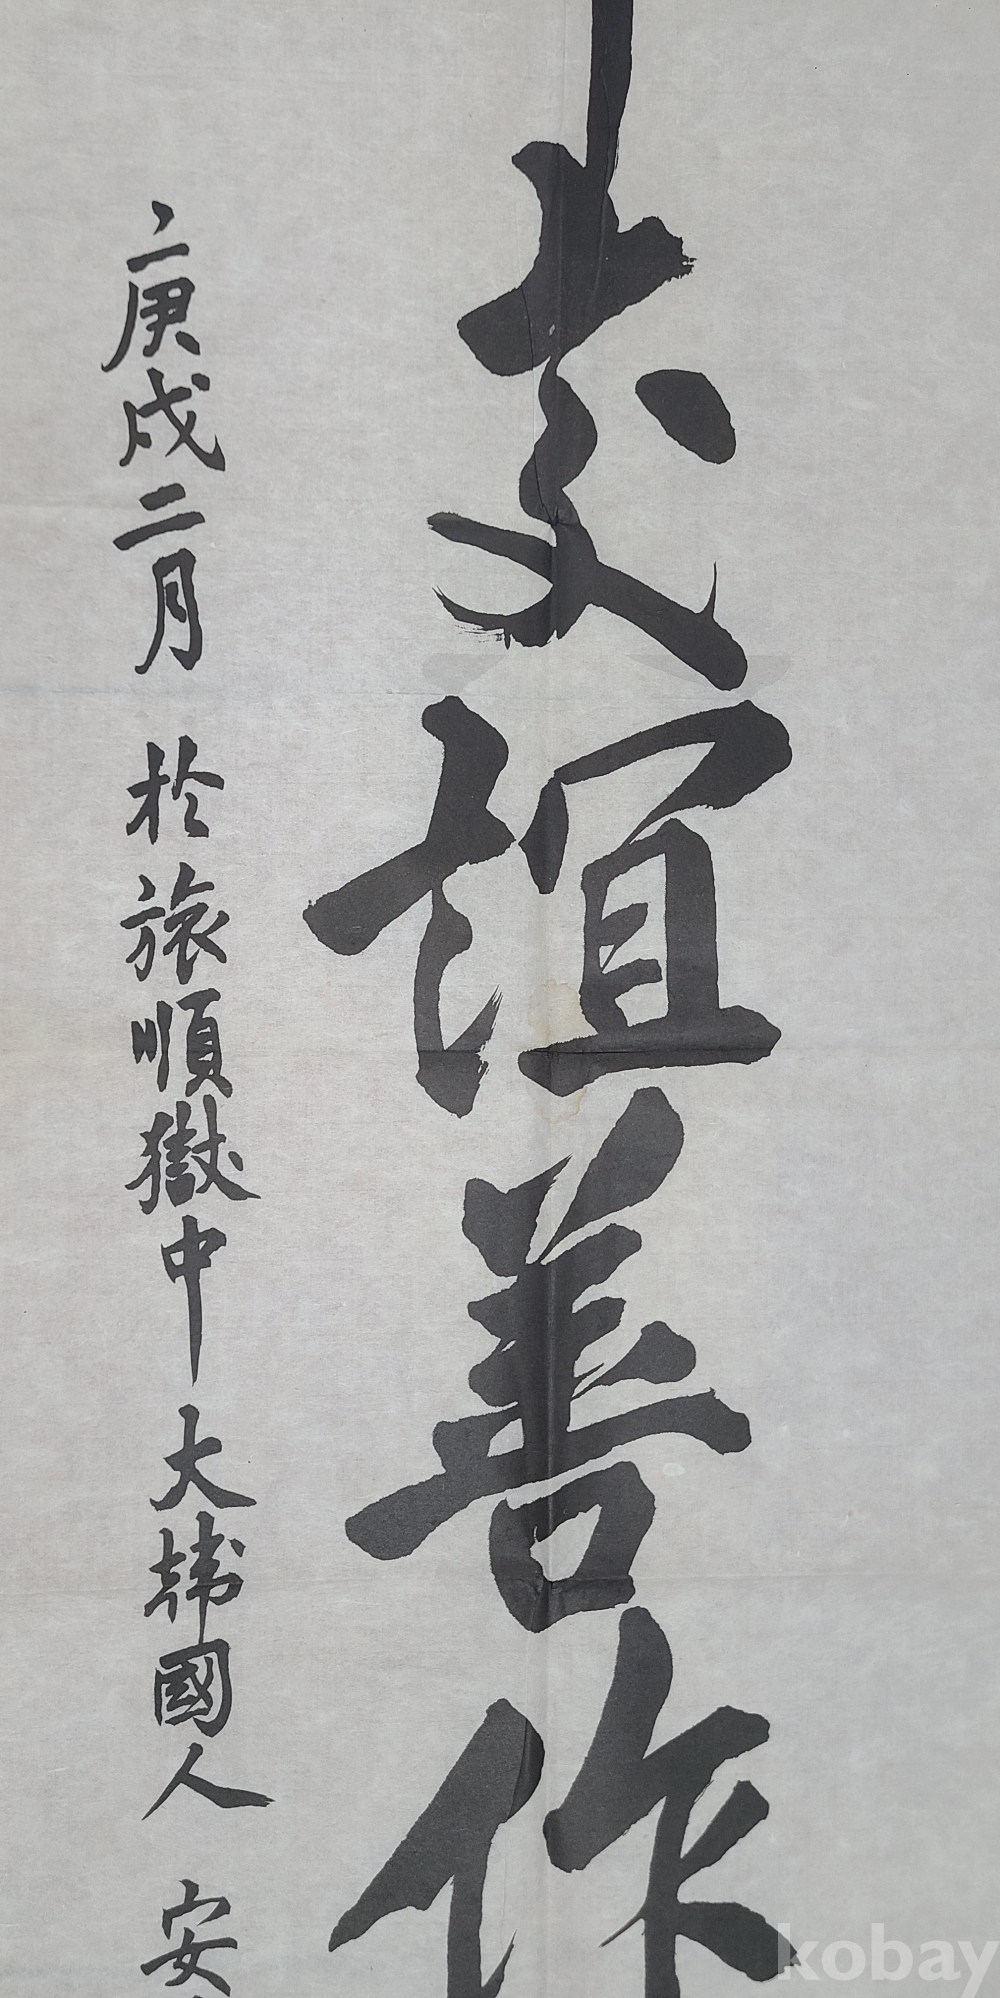 交誼善作
庚戌二月 於旅順獄中 大韓國人 安
kobay